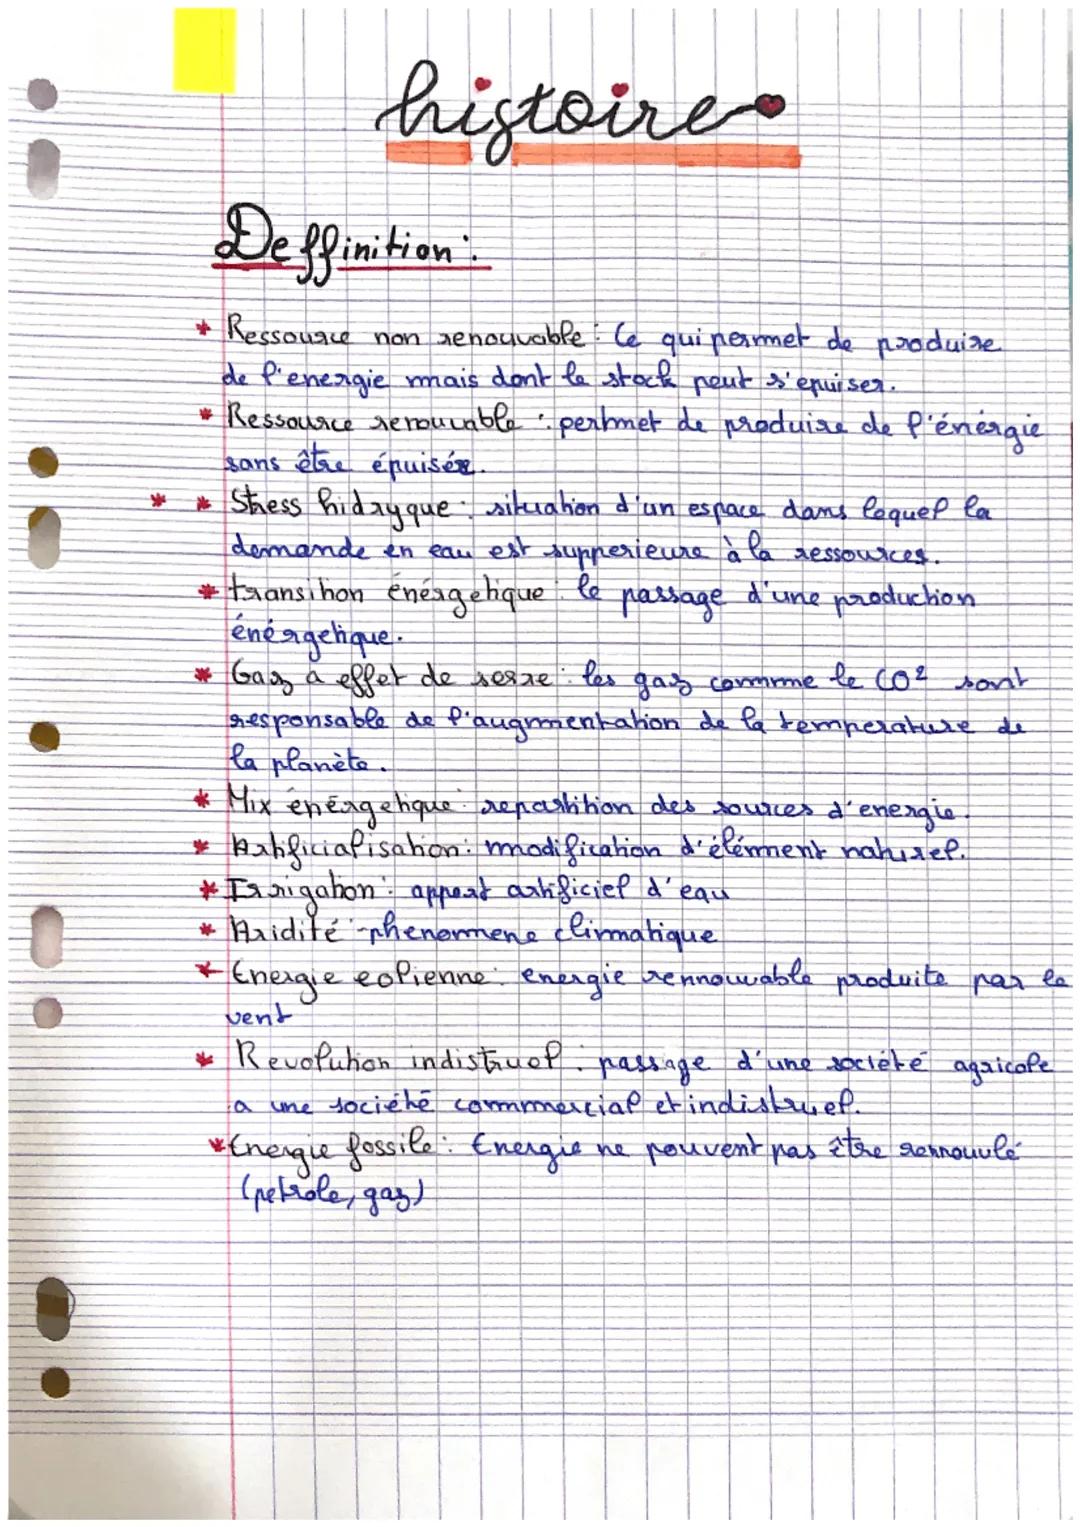 histoire
Deffinition :
* Ressource non renouvable : Ce qui permet de produire
de l'energie mais dont le stock peut s'epuiser.
* Ressource renouvable : permet de produire de l'énérgie
sans être épuisée.
* * Stress hidryque : situation d'un espace dans lequel la
demande en eau est supperieure à la ressources.
* transition énérgetique : le passage d'une production
énérgetique.
* Gaz a effet de serre : les gaz comme le CO² sont
responsable de l'augmentation de la temperature de
la planète.
* Mix énérgetique : repartition des sources d'energie.
* Artificialisation : modification d'élément naturel.
* Irrigation : apport artificiel d'eau
* Aridité - phenomene climatique
* Energie eolienne : energie rennouvable produite par le
vent
* Revolution indistruel : passage d'une societé agricole
a une société commercial et indistruel.
* Energie fossile : Energie ne pouvent pas être rennouvlé
(petrole, gaz)